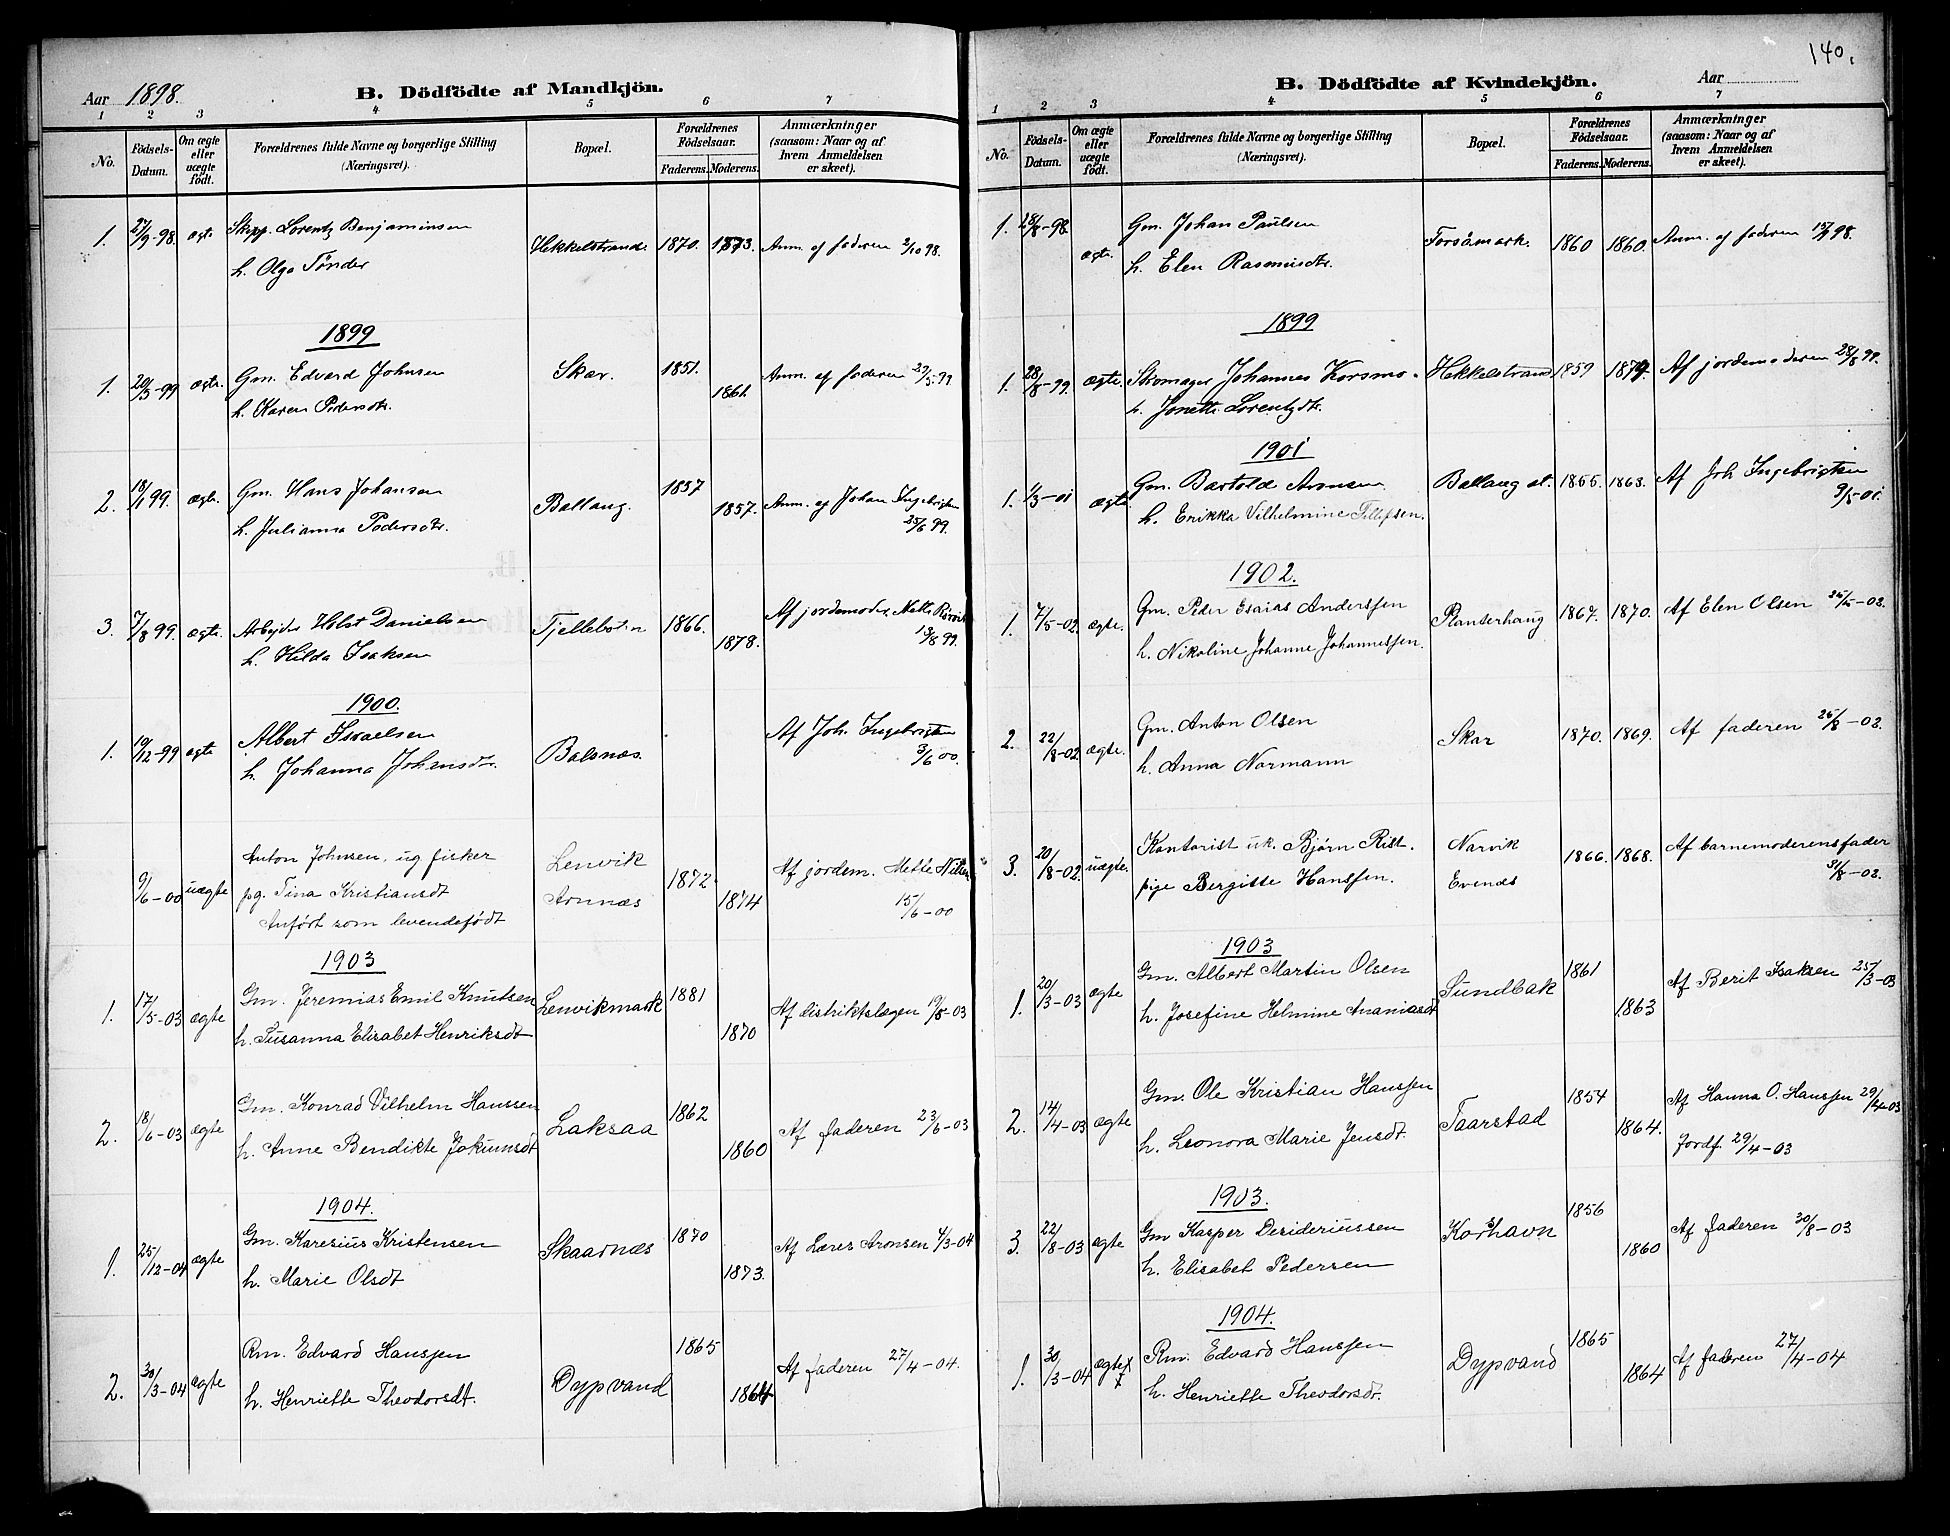 140.
Aar 1898.
B. Dödfödte af Mandkjön.
1 2 3 4 5 6 7
No.
Födsels-Datum.
Om ægte eller uægte födt.
Forældrenes fulde Navne og borgerlige Stilling (Næringsvei).
Bopæl.
Forældrenes Födselsaar.
Faderens. Moderens.
Anmærkninger (saasom: Naar og af hvem Anmeldelsen er skeet).
1. 27/9-98. ægte Skipp. Lorentz Benjaminsen Hekkelstrand. 1870. 1873. Anm. af faderen 2/10 98.
h. Olga Tønder
1899
1. 20/3-99 ægte. Gm. Edvard Johnsen Skar. 1851. 1861. Anm. af faderen 29/5 99
h. Karen Pedersdtr.
2. 18/1 99. ægte. Gm. Hans Johansen Ballang. 1857 1857. Anm. af Johan Ingebrigtsen
h. Julianna Pedersdtr. 25/6 99.
3. 7/8 99. ægte. Arbejder Holst Danielsen Tjellebotn 1866. 1878. Af jordemoder Mette
h. Hilda Isaksen 13/8 99.
1900.
1. 19/12-99 ægte Albert Israelsen Balsnæs. Af Joh. Ingebrigtsen
h. Johanna Johansdtr. 3/6 00.
9/6-00 uægte Anton Johnsen, ug fisker Lenvik 1872 1874 Af jordem. Mette Nilsen
pg. Tina Kristiansdt Arnnæs 15/6-00
Anført som levendefødt
1903
1. 17/5-03 ægte Gm. Jeremias Emil Knutsen Lenvikmark 1881 1870 Af distriktslægen 19/5-03
h. Susanna Elisabet Henriksdt
2. 18/6-03 ægte Gm. Konrad Vilhelm Hanssen Laksaa 1862 1860 Af faderen 23/6-03
h. Anne Bendikte Jakumsdt
1904.
1. 25/12-04 ægte Gm. Karesius Kristensen Skaarnæs 1870 1873. Af Lærer Aronsen 4/3-04
h. Marie Olsdt
2. 30/3-04 ægte Rm. Edvard Hanssen Dypvand 1865 1864 Af faderen 27/4-04.
h. Henriette Theodorsdt.
B. Dödfödte af Kvindekjön.
Aar
1 2 3 4 5 6 7
No.
Födsels-Datum.
Om ægte eller uægte födt.
Forældrenes fulde Navne og borgerlige Stilling (Næringsvei).
Bopæl.
Forældrenes Födselsaar.
Faderens. Moderens.
Anmærkninger (saasom: Naar og af hvem Anmeldelsen er skeet).
1. 28/8-98. ægte. Gm. Johan Paulsen Forsåmark. 1860 1860. Anm. af faderen 15/9 98.
h. Elen Rasmusdtr.
1899
1. 28/8-99. ægte. Skomager Johannes Korsmo Hekkelstrand 1859 1879. Af jordemoderen 28/8 99.
h. Jonette Lorentzdtr.
1901
1. 1/3-01 ægte Gm. Bartold Aronsen Ballang al. 1855. 1863. Af Joh Ingebrigtsen
h. Erikka Vilhelmine Tellefsen. 9/5-01.
1902.
1. 7/5-02. ægte. Gm. Peder Esaias Anderssen Planterhaug 1867. 1870. Af Elen Olsen
h. Nikoline Johanne Johannessen.
2. 22/8-02. ægte. Gm. Anton Olsen Skar 1870. 1869. Af faderen 26/8-02.
h. Anna Normann
3. 20/8-02. uægte. Kontorist uk. Bjørn Rist. Narvik 1866. 1868. Af barnemoderens fader
pige Bergitte Hanssen. Evenes 31/8-02.
1903
1. 20/3-03 ægte Gm. Albert Martin Olsen Sundbak 1861 1863 Af Berit Isaksen 25/3-03
h. Josefine Helmine Ananiasdt
2. 14/4-03 ægte Gm. Ole Kristian Hanssen Taarstad 1854 1864. Af Hanna O. Hanssen 29/4-03
h. Leonora Marie Jensdt. Jordf. 29/4-03
1903.
3. 22/8-03 ægte Gm Kasper Desideriussen Korhavn 1856 1860 Af faderen 30/8-03
h. Elisabet Pedersen
1904.
1. 30/3-04 ægte Rm. Edvard Hanssen Dypvand 1865 1864 Af faderen 27/4-04
h. Henriette Theodorsdt.